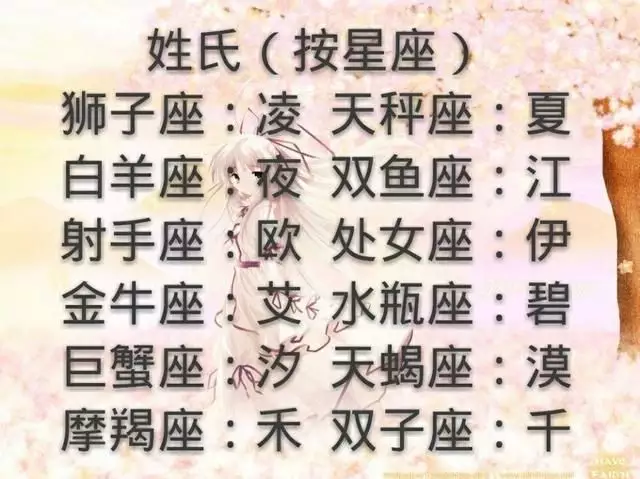 姓氏（按星座）
狮子座：凌 天秤座：夏
白羊座：夜 双鱼座：江
射手座：欧 处女座：伊
金牛座：艾 水瓶座：碧
巨蟹座：汐 天蝎座：漠
摩羯座：禾 双子座：千